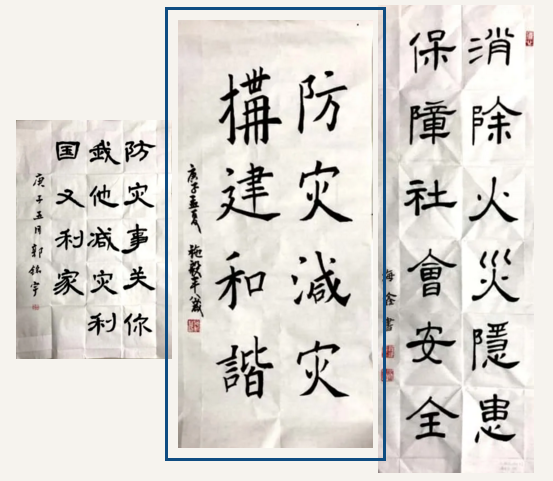 防灾事关你
我他减灾利
国又利家
庚子五月郭铭宇
防灾減灾
構建和諧
庚子孟夏 施毅平
消除火災隱患
保障社會安全
海金書